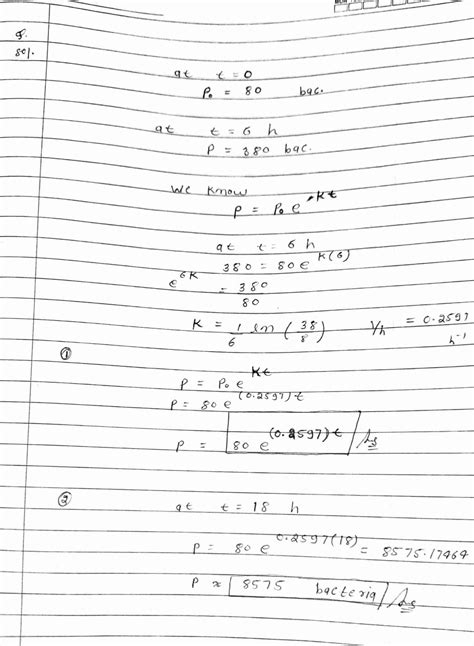 Q.
sol.
at t = 0
P₀ = 80 bac.
at t = 6 h
P = 380 bac.
We know
P = P₀ e^Kt
at t = 6 h
380 = 80 e^K(6)
e^6K = 380/80
K = 1/6 ln (38/8) 1/h = 0.2597 h⁻¹
①
P = P₀ e^Kt
P = 80 e^(0.2597)t
P = 80 e^(0.2597)t
②
at t = 18 h
P = 80 e^0.2597(18) = 8575.17464
P ≈ 8575 bacteria